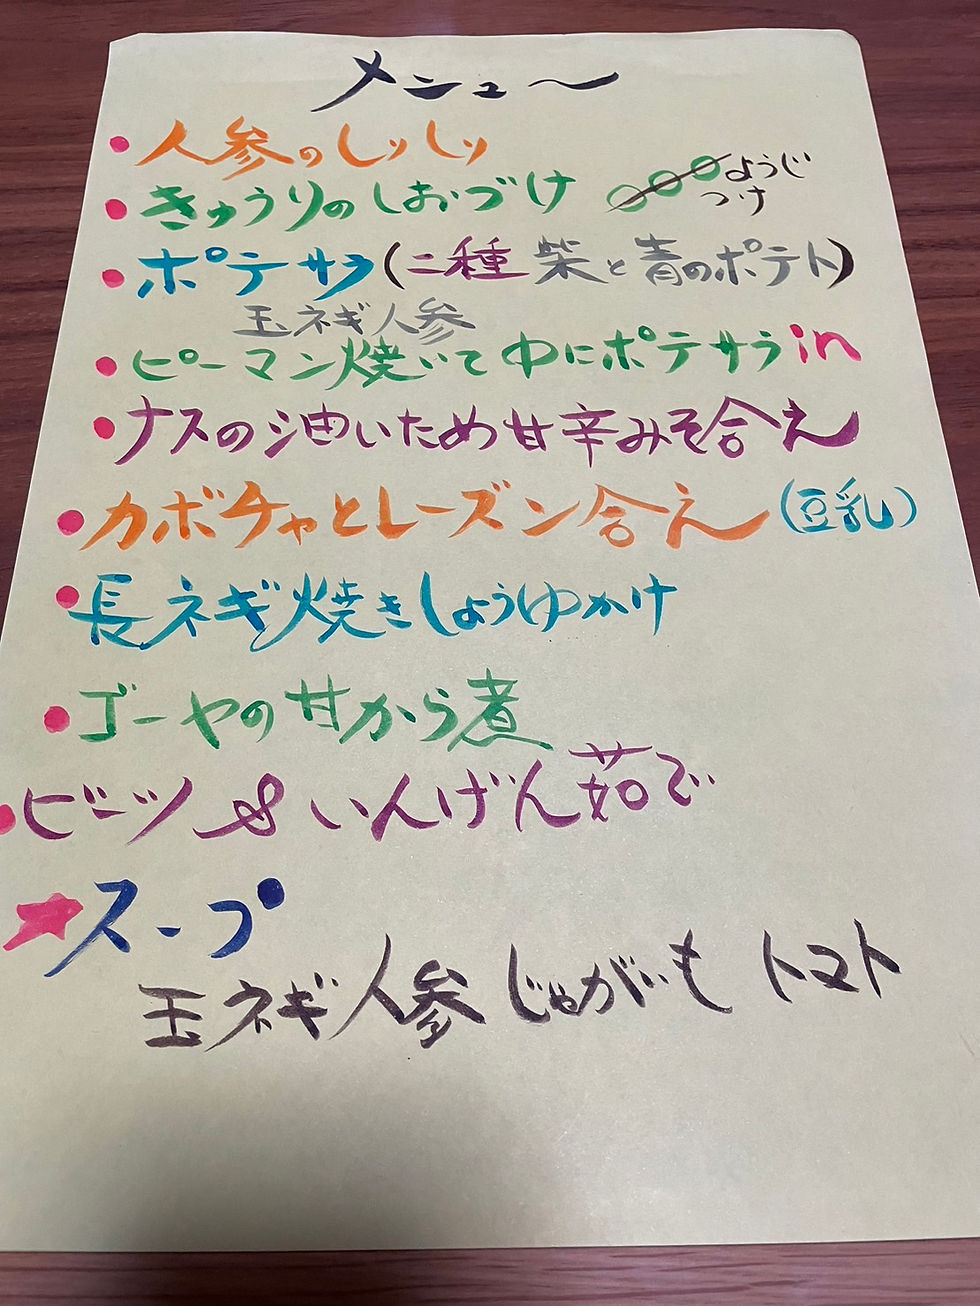 メニュ〜
・人参のしりしり
・きゅうりのしおづけ ようじ
つけ
・ポテサラ(二種 柴と青のポテト)
玉ネギ人参
・ピーマン焼いて中にポテサラin
・ナスの油いため甘辛みそ合え
・カボチャとレーズン合え(豆乳)
・長ネギ焼きしょうゆかけ
・ゴーヤの甘から煮
・ビーツ&いんげん茹で
★スープ
玉ネギ人参 じゃがいも トマト